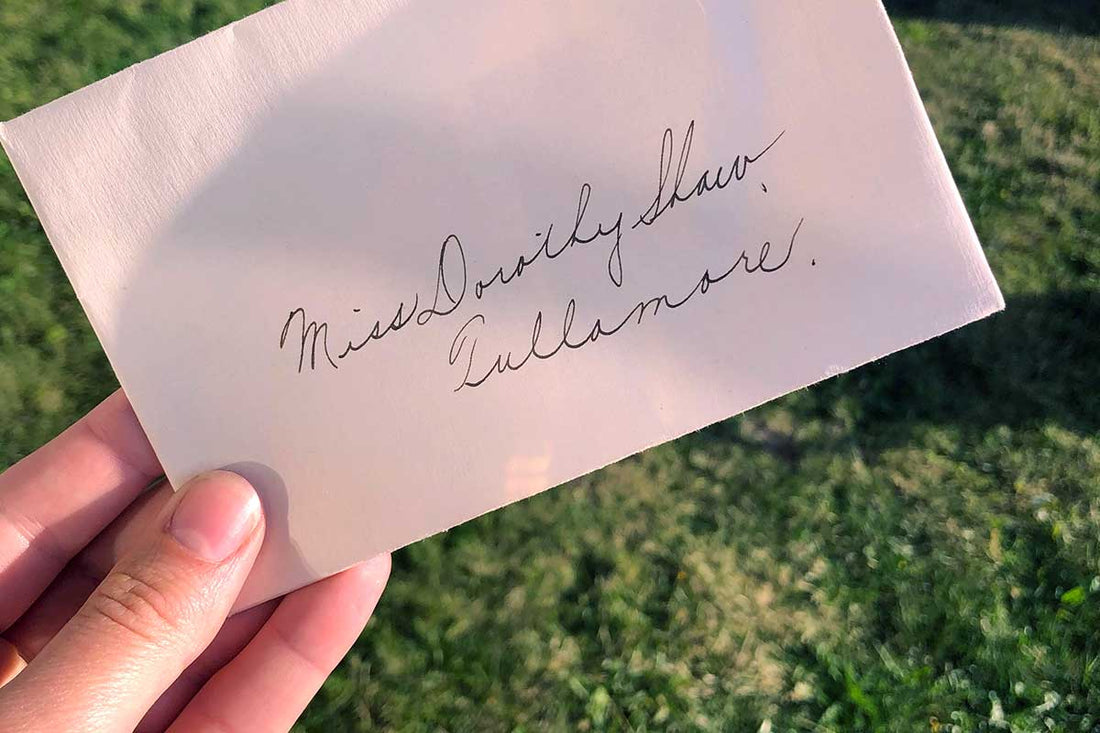 Miss Dorothy Shaw,
Tullamore.